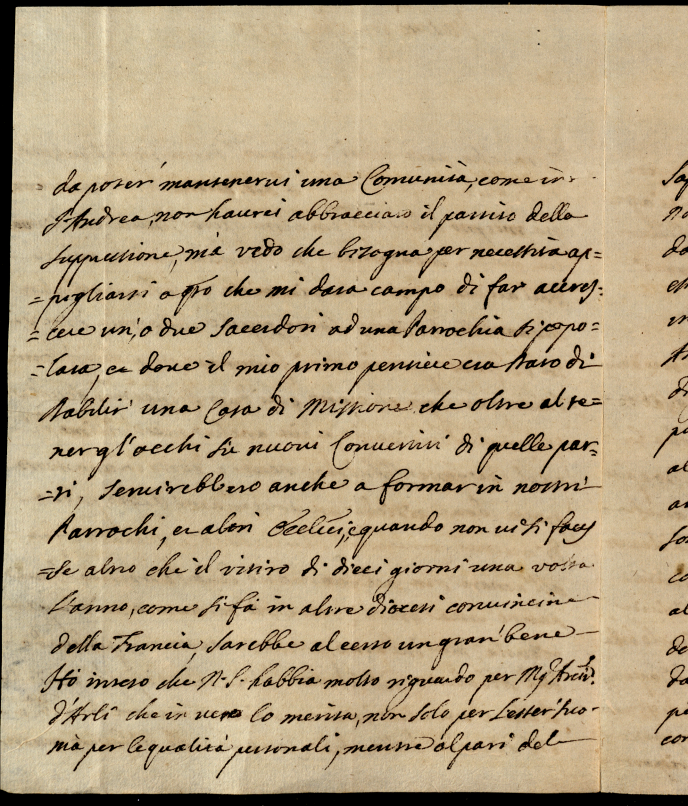 da poter mantenervi una Comunità, come in
S. Andrea, non haurei abbracciato il partito della
suppressione, mà vedo che bisogna per necessità ap=
=pigliarsi a qto che mi darà campo di far accres=
=cere un, o due Sacerdoti ad una Parrochia sì popo=
=lata, et dove il mio primo pensiere era stato di
stabilir una Casa di Missione che oltre al te=
ner gl'occhi sù nuovi Convertiti di quelle par=
=ti, servirebbero anche a formar in nostri
Parrochi, et altri Ecclici, e quando non vi si faces
=se altro che il ritiro di dieci giorni una volta
l'anno, come si fà in altre diocesi convincine
della Francia, sarebbe al certo un gran bene
Hò inteso che N. S. habbia molto riguardo per Mgr Arciv.
d'Arli che in vero lo merita, non solo per l'esser suo
mà per le qualità personali, mentre al pari del